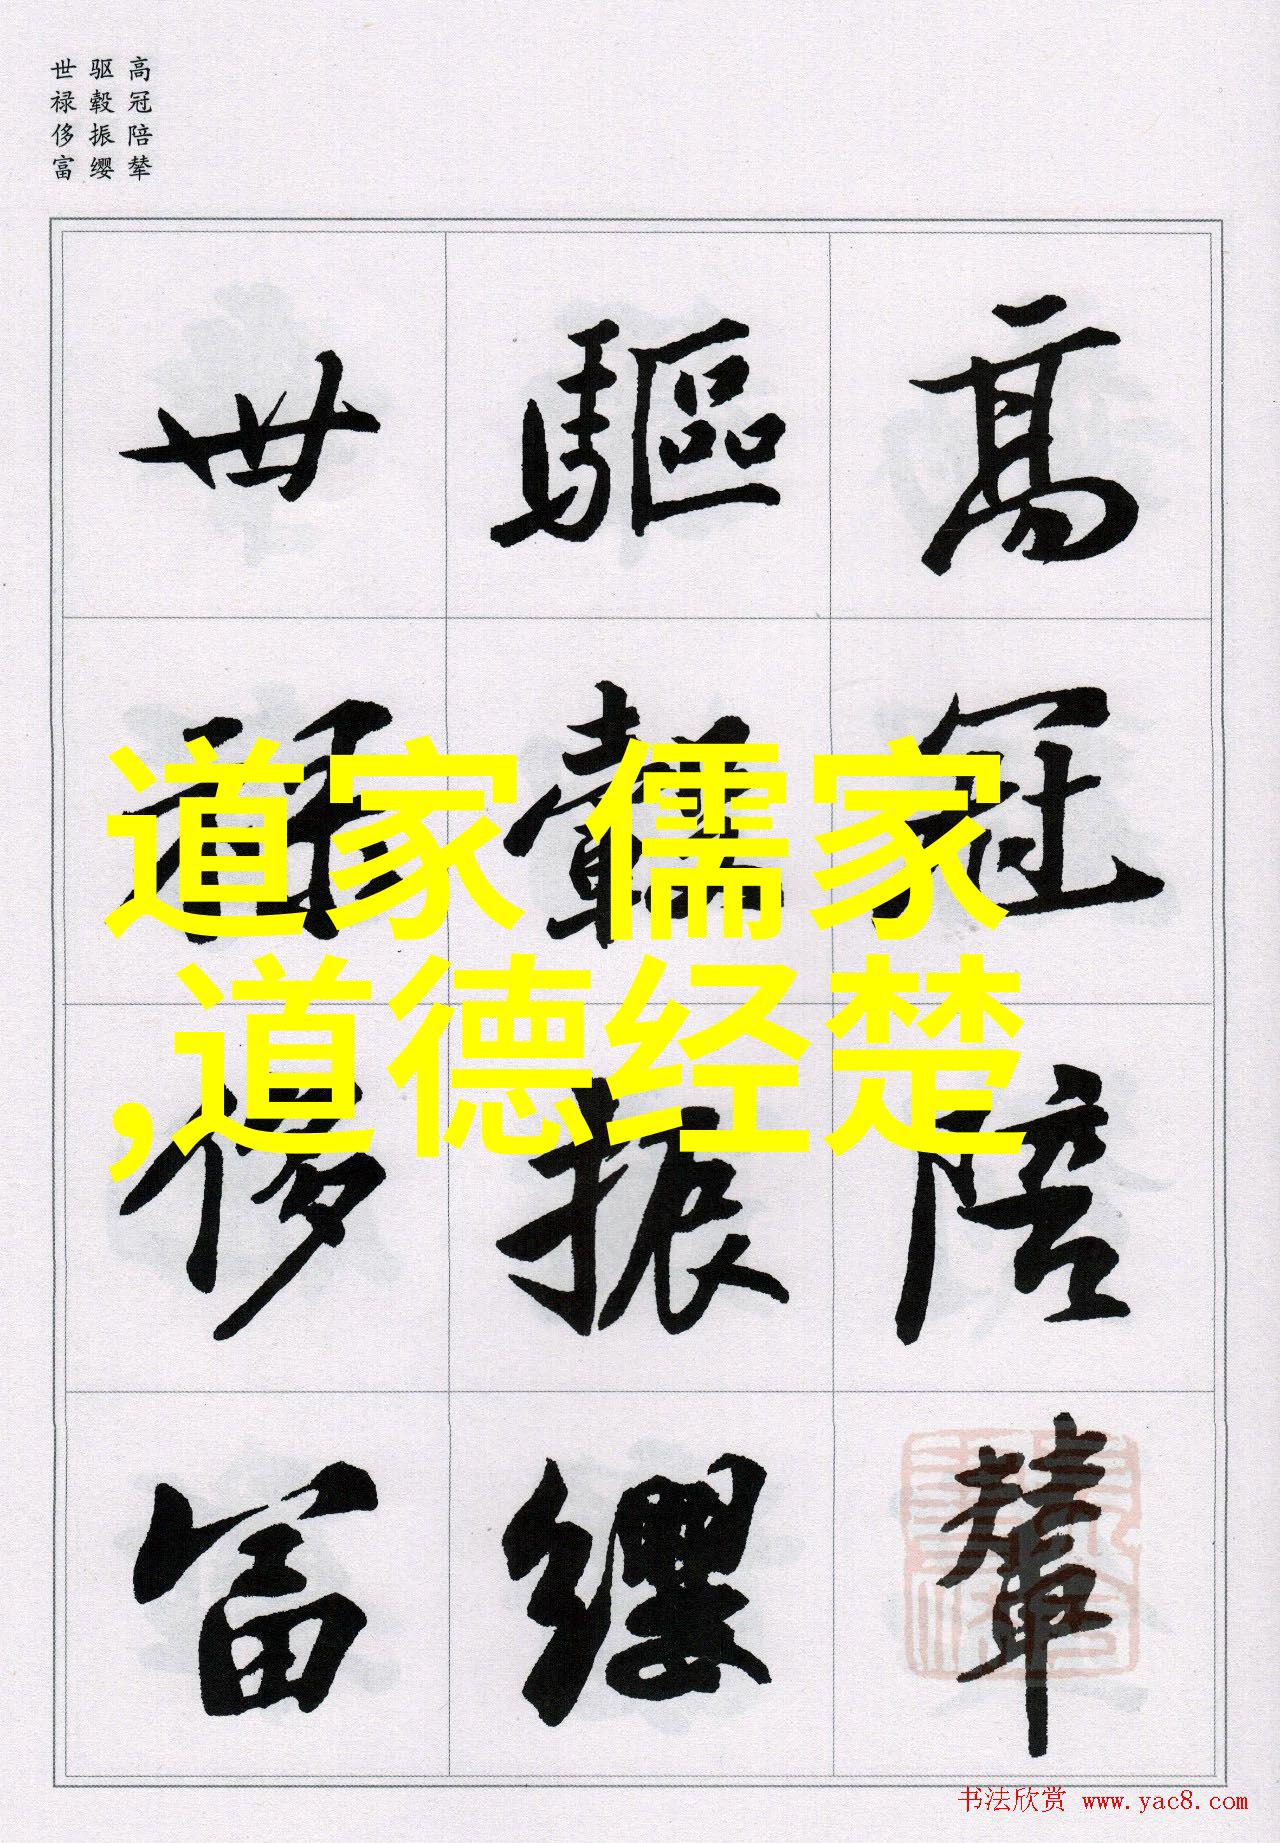 高冠陪辇
驱毂振缨
世禄侈富
高冠陪輦
驅轂振纓
世祿侈富
道家 儒家
,道德经楚
书法欣赏 www.yac8.com